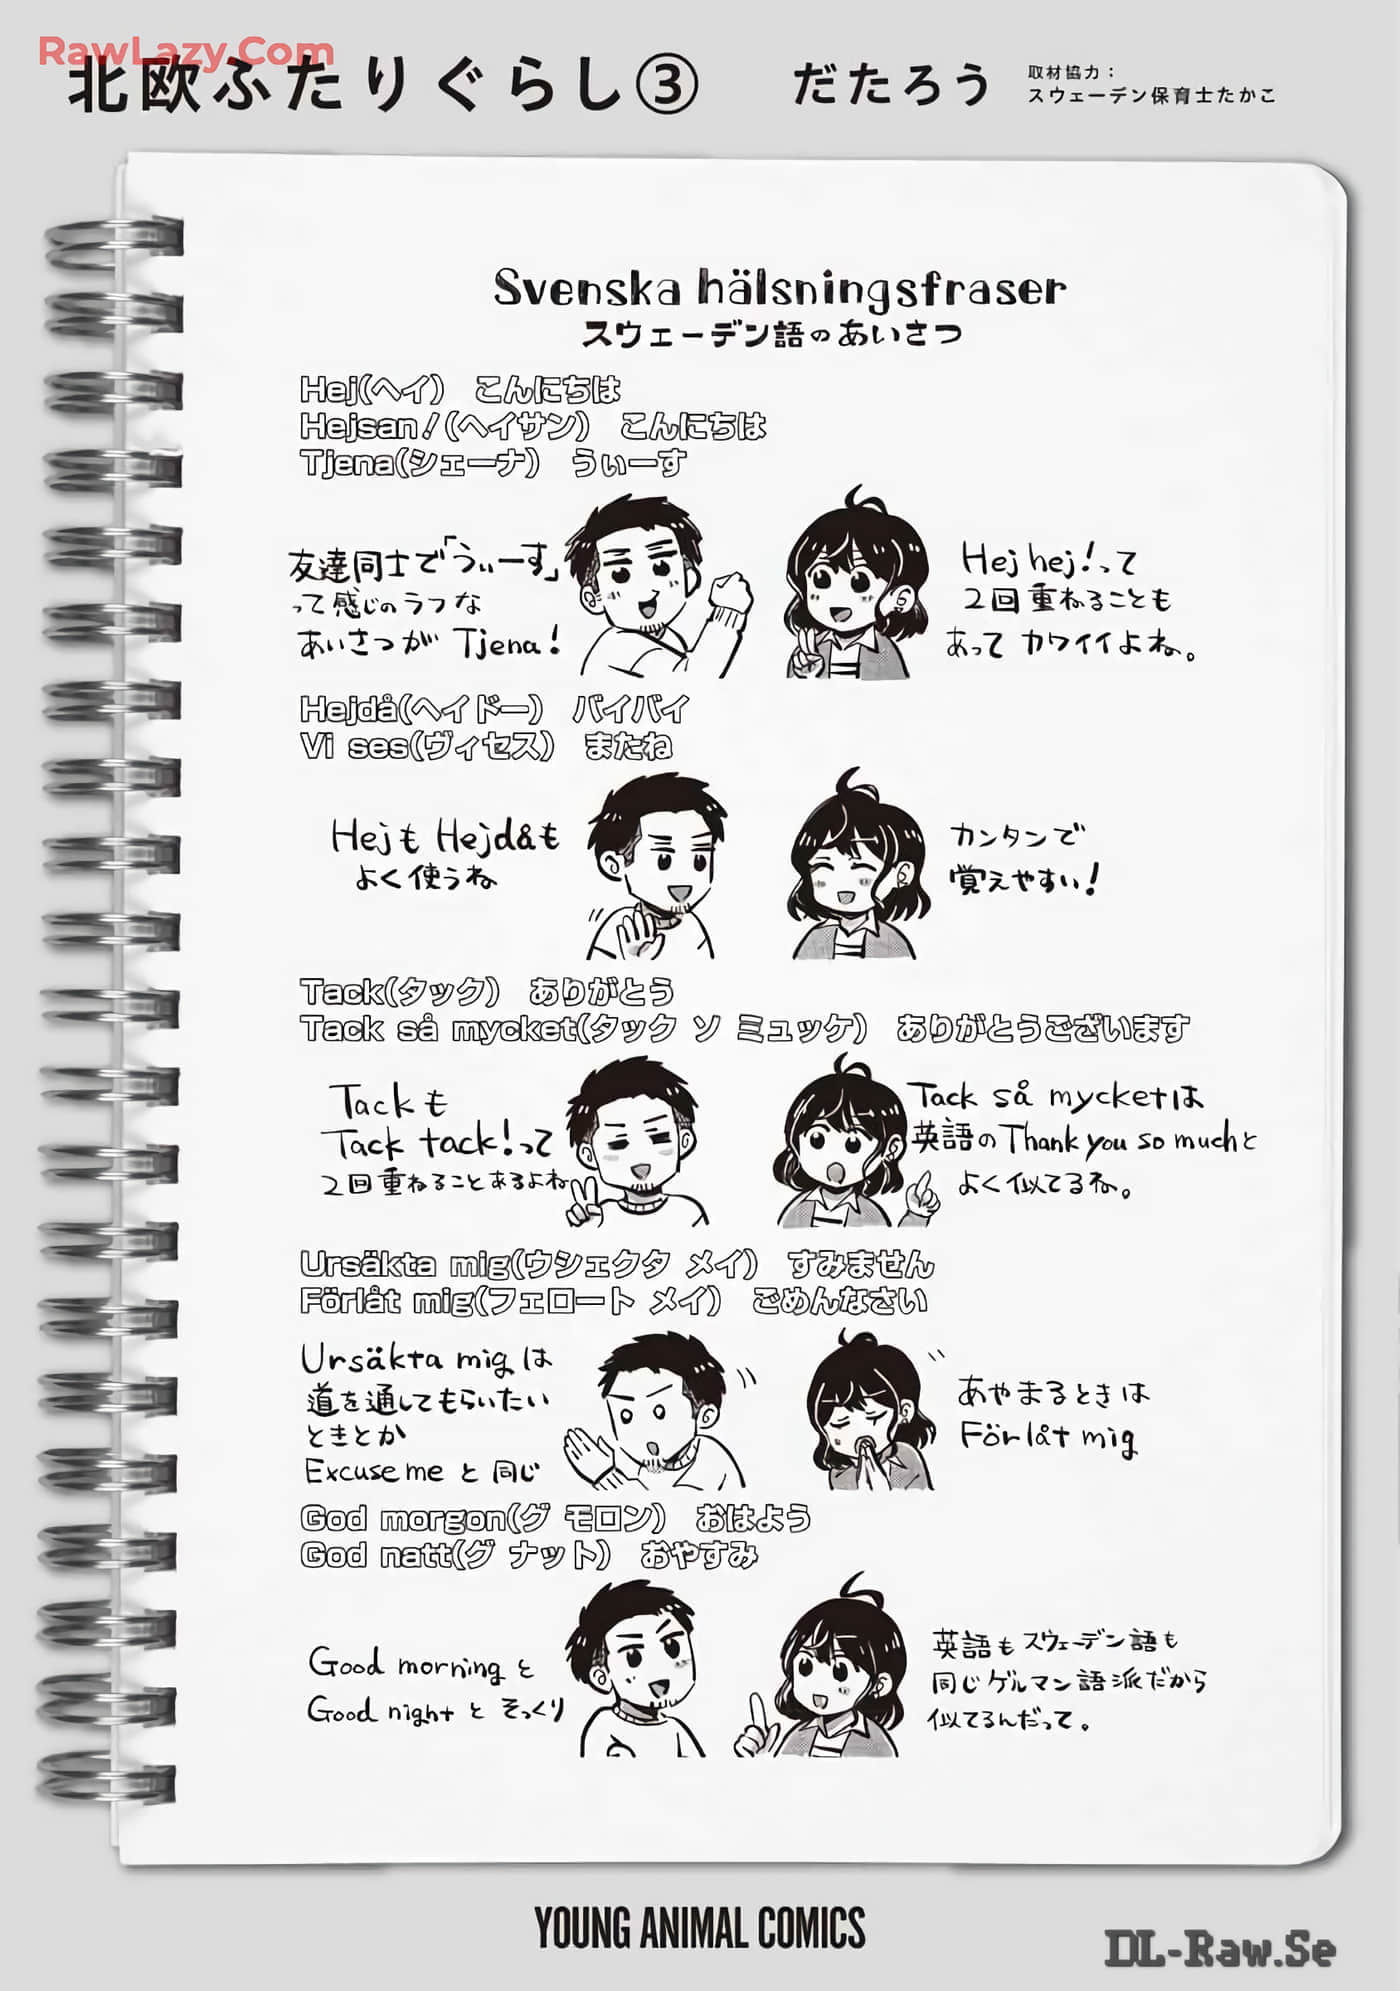 RawLazy.Com
北欧ふたりぐらし③ だたろう
取材協力：
スウェーデン保育士たかこ
Svenska hälsningsfraser
スウェーデン語のあいさつ
Hej(ヘイ) こんにちは
Hejsan！(ヘイサン) こんにちは
Tjena(シェーナ) うぃーす
友達同士で「うぃーす」
って感じのラフな
あいさつが Tjena！
Hej hej！って
2回重ねることも
あって カワイイよね。
Hejdå(ヘイドー) バイバイ
Vi ses(ヴィセス) またね
Hejも Hejdåも
よく使うね
カンタンで
覚えやすい！
Tack(タック) ありがとう
Tack så mycket(タック ソ ミュッケ) ありがとうございます
Tackも
Tack tack！って
2回重ねることあるよね
Tack så mycketは
英語のThank you so muchと
よく似てるね。
Ursäkta mig(ウシェクタ メイ) すみません
Förlåt mig(フェロート メイ) ごめんなさい
Ursäkta migは
道を通してもらいたい
ときとか
Excuse meと同じ
あやまるときは
Förlåt mig
God morgon(グ モロン) おはよう
God natt(グ ナット) おやすみ
Good morningと
Good nightとそっくり
英語もスウェーデン語も
同じゲルマン語派だから
似てるんだって。
YOUNG ANIMAL COMICS
DL-Raw.Se